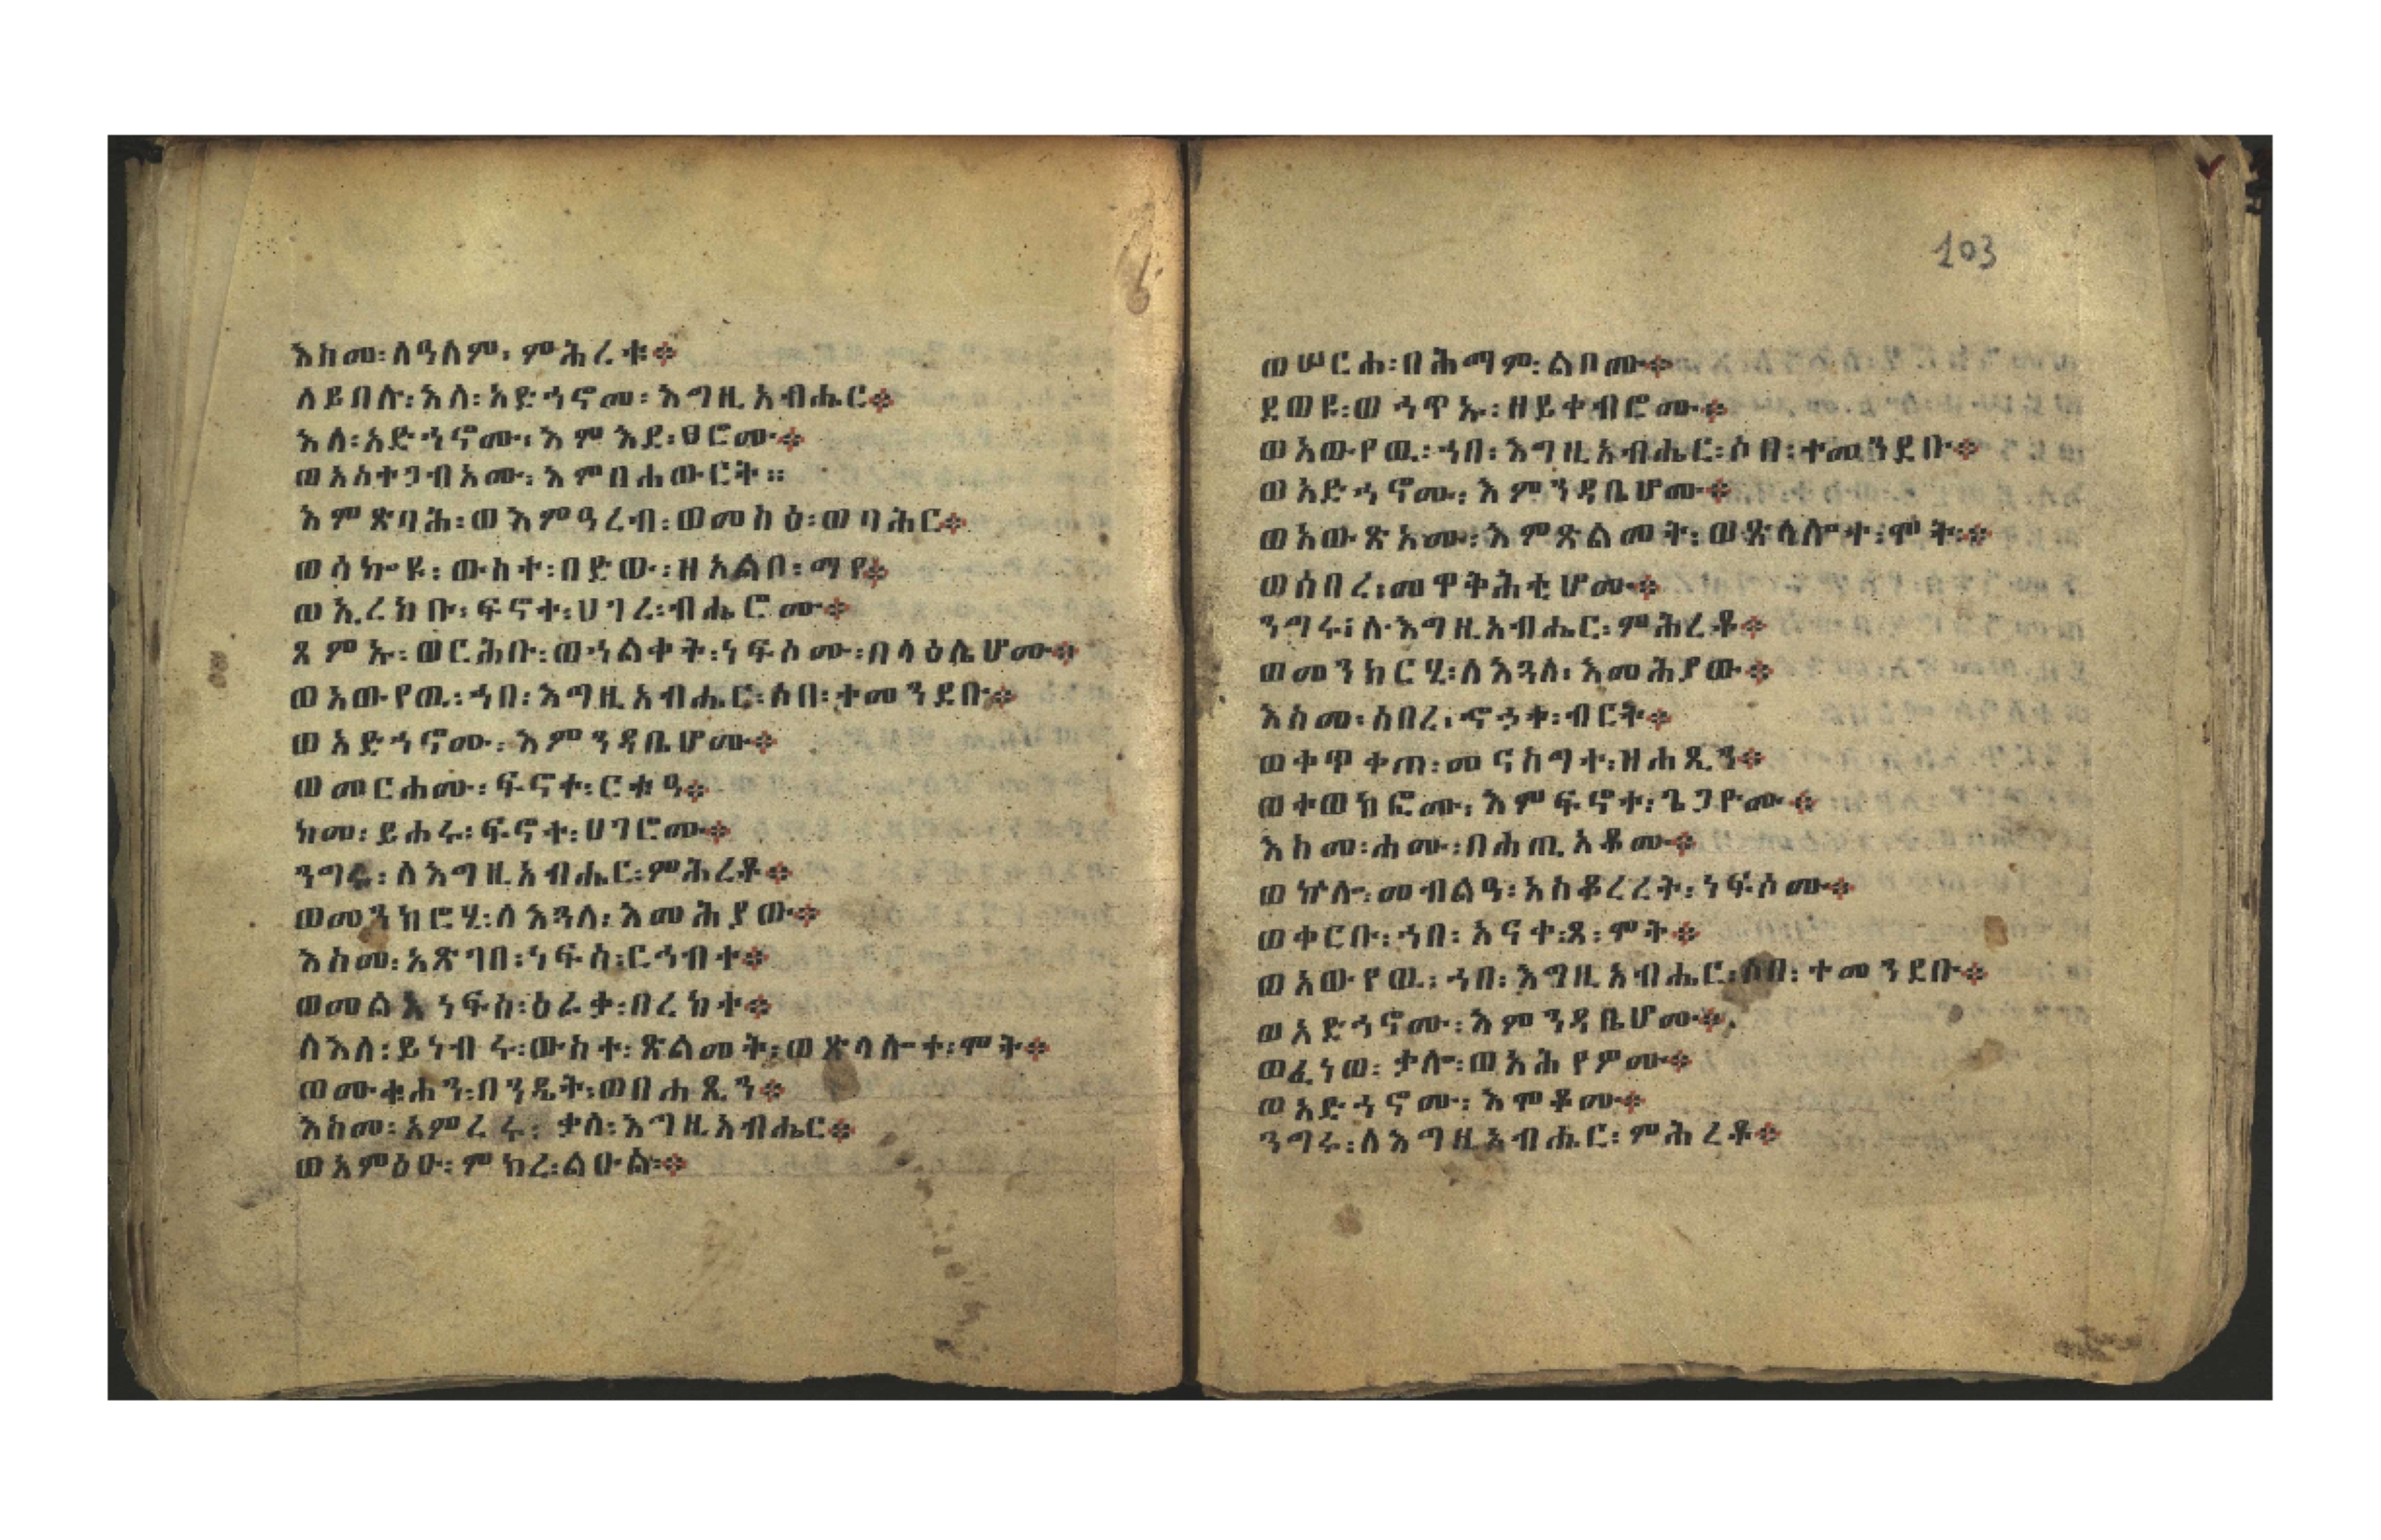 እስመ፡ለዓለም፡ምሕረቱ፨
ለይበሉ፡እለ፡አድኀኖሙ፡እግዚአብሔር፨
እለ፡አድኀኖሙ፡እምእደ፡ፀሮሙ፨
ወአስተጋብአሙ፡እምበሐውርት።
እምጽባሕ፡ወእምዓረብ፡ወመስዕ፡ወባሕር፨
ወሳኰዩ፡ውስተ፡በድው፡ዘአልቦ፡ማየ፨
ወኢረክቡ፡ፍኖተ፡ሀገረ፡ብሔሮሙ፨
ጸምኡ፡ወርሕቡ፡ወኀልቀት፡ነፍሶሙ፡በላዕሌሆሙ፨
ወአውየዉ፡ኀበ፡እግዚአብሔር፡ሶበ፡ተመንደቡ፨
ወአድኀኖሙ፡እምንዳቤሆሙ፨
ወመርሐሙ፡ፍኖተ፡ርቱዓ፨
ከመ፡ይሐሩ፡ፍኖተ፡ሀገሮሙ፨
ንግሩ፡ለእግዚአብሔር፡ምሕረቶ፨
ወመንክሮሂ፡ለእጓለ፡እመሕያው፨
እስመ፡አጽገበ፡ነፍሰ፡ርኅብተ፨
ወመልአ፡ነፍሰ፡ዕራቃ፡በረከተ፨
ለእለ፡ይነብሩ፡ውስተ፡ጽልመት፡ወጽላሎተ፡ሞት፨
ወሙቁሐን፡በንዴት፡ወበሐጺን፨
እስመ፡አምረሩ፡ቃለ፡እግዚአብሔር፨
ወአምዕዑ፡ምክረ፡ልዑል፨
103
ወሠርሐ፡በሕማም፡ልቦሙ፨
ደወዩ፡ወኀጥኡ፡ዘይቀብሮሙ፨
ወአውየዉ፡ኀበ፡እግዚአብሔር፡ሶበ፡ተመንደቡ፨
ወአድኀኖሙ፡እምንዳቤሆሙ፨
ወአውጽአሙ፡እምጽልመት፡ወጽላሎተ፡ሞት፨
ወሰበረ፡መዋቅሕቲሆሙ፨
ንግሩ፡ለእግዚአብሔር፡ምሕረቶ፨
ወመንክርሂ፡ለእጓለ፡እመሕያው፨
እስመ፡ሰበረ፡ኆኃተ፡ብርት፨
ወቀጥቀጠ፡መናስግተ፡ዝሐጺን፨
ወተወክፎሙ፡እምፍኖተ፡ጌጋዮሙ፨
እስመ፡ሐሙ፡በሕጢአቶሙ፨
ወኵሎ፡መብልዓ፡አስቆረረት፡ነፍሶሙ፨
ወቀርቡ፡ኀበ፡አናቀጸ፡ሞት፨
ወአውየዉ፡ኀበ፡እግዚአብሔር፡ሶበ፡ተመንደቡ፨
ወአድኀኖሙ፡እምንዳቤሆሙ፨
ወፈነወ፡ቃሎ፡ወአሕየዎሙ፨
ወአድኀኖሙ፡እሞቶሙ፨
ንግሩ፡ለእግዚአብሔር፡ምሕረቶ፨